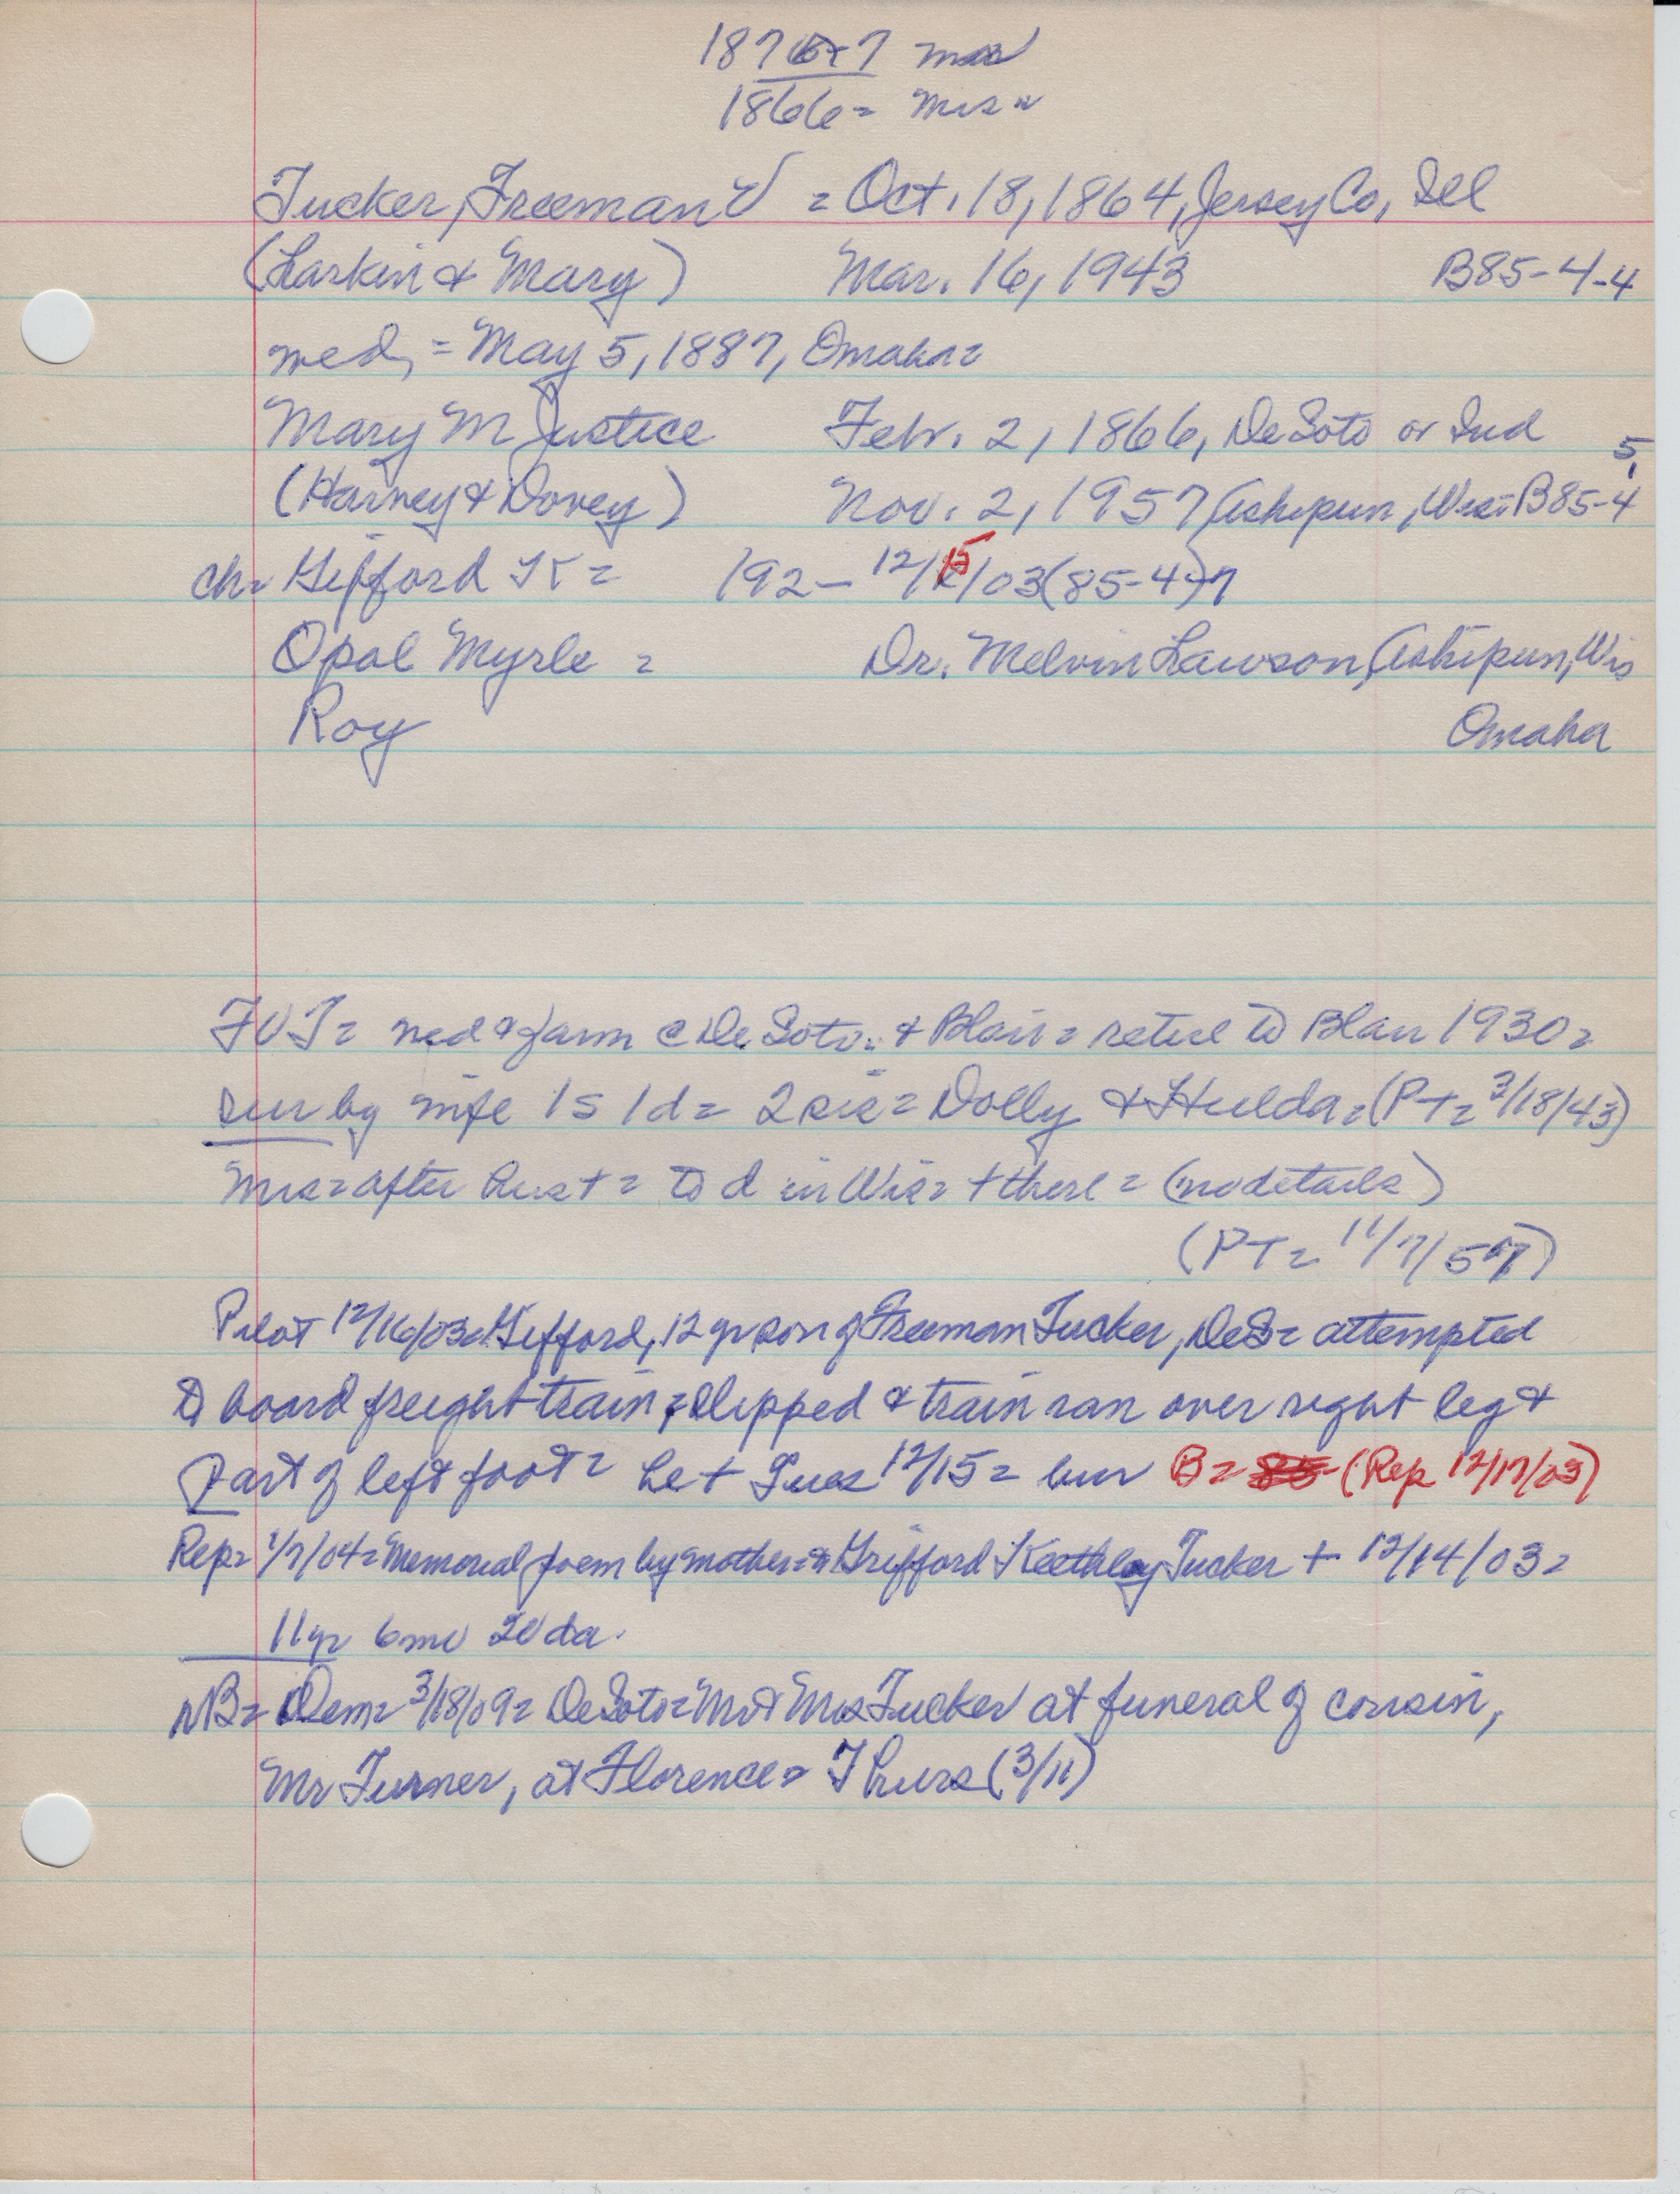 1876 or 7
1866 = Mrs "
Tucker, Freeman V = Oct. 18, 1864, Jersey Co, Ill
(Larkin & Mary) Mar. 16, 1943 B85-4-4
wed, = May 5, 1887, Omaha =
Mary M Justice Feb. 2, 1866, DeSoto or Ind
(Harvey & Dovey) Nov. 2, 1957 Ashipun, Wis = B85-4 5,
ch = Gifford K = 192 - 12/15/03 (85-4)-7
Opal Myrle = Dr. Melvin Lawson, Ashipun, Wis
Roy Omaha
FVT = farm @ DeSoto & Blair = retire to Blair 1930 =
sur by wife 1s 1d = 2 sis = Dolly & Hulda = (PT = 3/18/43)
Mrs = after hus + = to d in Wis = + there = (no details)
(PT = 11/7/57)
Pilot 12/16/03 = Gifford, 12 yr son of Freeman Tucker, DeS = attempted
to board freight train, slipped & train ran over right leg &
part of left foot = he + Tues 12/15 = bur B = (Rep 12/17/03)
Rep = 1/7/04 = Memorial poem by mother = Grifford Keethley Tucker + 12/14/03 =
11 yr 6 mo 20 da.
NB = Dem = 3/18/09 = DeSoto = Mr & Mrs Tucker at funeral of cousin,
Mr Turner, at Florence = Thurs (3/11)